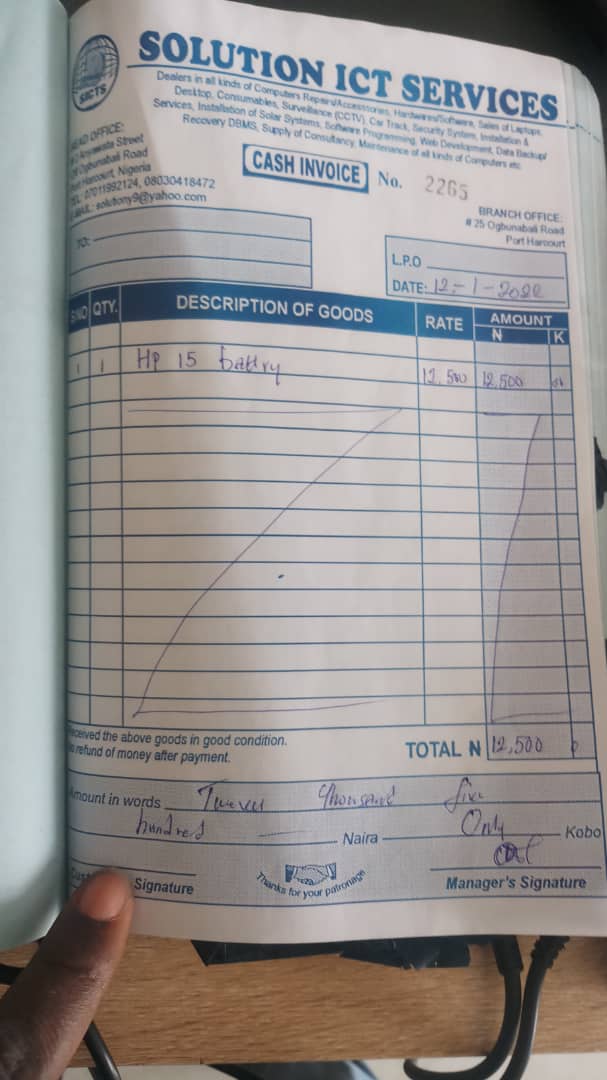 SOLUTION ICT SERVICES
SICTS
Dealers in all kinds of Computers Repairs/Accessories, Hardwares/Software, Sales of Laptops,
Desktop, Consumables, Surveillance (CCTV), Car Track, Security System, Installation &
Services, Installation of Solar Systems, Software Programming, Web Development, Data Backup/
Recovery DBMS, Supply of Consultancy, Maintenance of all kinds of Computers etc
OFFICE:
Street
Ogbunabali Road
Harcourt, Nigeria
07011992124, 08030418472
solutony9@yahoo.com
CASH INVOICE No. 2265
BRANCH OFFICE:
# 25 Ogbunabali Road
Port Harcourt
TO:
L.P.O
DATE: 12-1-2022
S/NO QTY. DESCRIPTION OF GOODS RATE AMOUNT
N K
1 1 HP 15 battry 12,500 12,500
received the above goods in good condition.
refund of money after payment.
TOTAL N 12,500
Amount in words Thousand five
hundred Naira Only Kobo
Signature
Thanks for your patronage
Manager's Signature